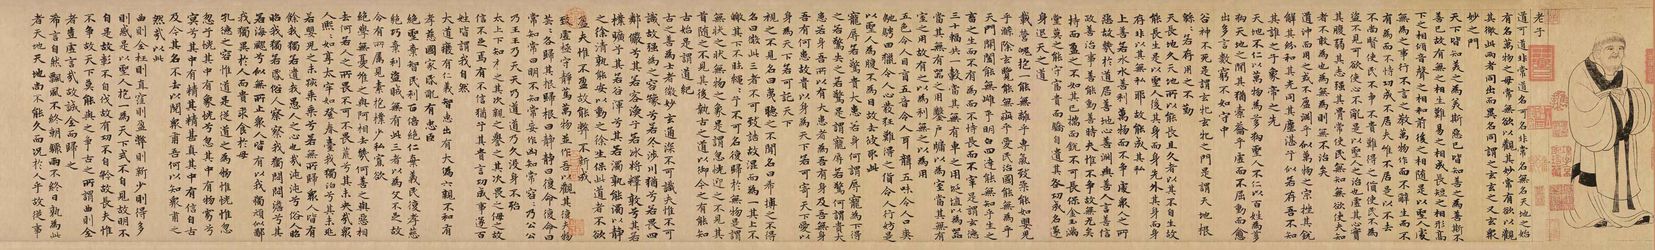 老子
道可道非常道名可名非常名無名天地之始
有名萬物之母常無欲以觀其妙常有欲以觀
其徼此兩者同出而異名同謂之玄玄之又玄衆
妙之門
天下皆知美之為美斯惡已皆知善之為善斯不
善已故有無之相生難易之相成長短之相形高
下之相傾音聲之相和前後之相隨是以聖人處
無為之事行不言之教萬物作而不辭生而不
有為而不恃功成不居夫惟不居是以不去
不尚賢使民不爭不貴難得之貨使民不為
盜不見可欲使心不亂是以聖人之治也虛其心實
其腹弱其志強其骨常使民無知無欲使夫知
者不敢為也為無為則無不治矣
道沖而用之或不盈淵乎似萬物之宗挫其銳
解其紛和其光同其塵湛兮似若存吾不知
其誰之子象帝之先
天地不仁以萬物為芻狗聖人不仁以百姓為芻
狗天地之間其猶橐籥乎虛而不屈動而愈
出多言數窮不如守中
谷神不死是謂玄牝玄牝之門是謂天地根
綿綿若存用之不勤
天長地久天地所以能長且久者以其不自生故
能長生是以聖人後其身而身先外其身而身
存非以其無私耶故能成其私
上善若水水善利萬物而不爭處衆人之所
惡故幾於道居善地心善淵與善人言善信
政善治事善能動善時夫惟不爭故無尤矣
持而盈之不如其已揣而銳之不可長保金玉滿
堂莫之能守富貴而驕自遺其咎功成名遂
身退天之道
載營魄抱一能無離乎專氣致柔能如嬰兒
乎滌除玄覽能無疵乎愛民治國能無為乎
天門開闔能無雌乎明白四達能無知乎生之
畜之生而不有為而不恃長而不宰是謂玄德
三十輻共一轂當其無有車之用埏埴以為器
當其無有器之用鑿戶牖以為室當其無有
室之用故有之以為利無之以為用
五色令人目盲五音令人耳聾五味令人口爽
馳騁田獵令人心發狂難得之貨令人行妨是
以聖人為腹不為目故去彼取此
寵辱若驚貴大患若身何謂寵辱寵為下得
之若驚失之若驚是謂寵辱若驚何謂貴大
患若身吾所以有大患者為吾有身及吾無身
吾有何患故貴以身為天下若可寄天下愛以
身為天下若可託天下
視之不見名曰夷聽之不聞名曰希搏之不得
名曰微此三者不可致詰故混而為一其上不
皦其下不昧繩繩乎不可名復歸於無物是謂
無狀之狀無物之象是謂惚恍迎之不見其
首隨之不見其後執古之道以御今之有能知
古始是謂道紀
古之善為士者微妙玄通深不可識夫惟不可
識故強為之容豫兮若冬涉川猶兮若畏四
鄰儼兮若容渙兮若冰將釋敦兮其若
樸曠兮其若谷渾兮其若濁孰能濁以靜
之徐清孰能安以動之徐生保此道者不欲
盈夫惟不盈故能弊不新成
致虛極守靜篤萬物並作吾以觀其復夫物
芸芸各歸其根歸根曰靜靜曰復命復命曰
常知常曰明不知常妄作凶知常容容乃公公
乃王王乃天天乃道道乃久沒身不殆
太上下知有之其次親之譽之其次畏之侮之故
信不足焉有不信猶乎其貴言功成事遂百
姓皆謂我自然
大道廢有仁義智惠出有大偽六親不和有
孝慈國家昏亂有忠臣
絕聖棄智民利百倍絕仁棄義民復孝慈
絕巧棄利盜賊無有此三者以為文不足故
令有所屬見素抱樸少私寡欲
絕學無憂唯之與阿相去幾何善之與惡相
去何若人之所畏不可不畏荒兮其未央哉衆人
熙熙如享太牢如登春臺我獨泊兮其未兆
若嬰兒之未孩乘乘兮若無所歸衆人皆有
餘我獨若遺我愚人之心也哉沌沌兮俗人昭
昭我獨若昏俗人察察我獨悶悶澹兮其
若海飂兮似無所止衆人皆有以我獨頑似鄙
我獨異於人而貴求食於母
孔德之容惟道是從道之為物惟恍惟忽
忽兮恍其中有象恍兮忽其中有物窈兮
冥兮其中有精其精甚真其中有信自古
及今其名不去以閱衆甫吾何以知衆甫之
然哉以此
曲則全枉則直窪則盈弊則新少則得多
則惑是以聖人抱一為天下式不自見故明不
自是故彰不自伐故有功不自矜故長夫惟
不爭故天下莫能與之爭古之所謂曲則全
者豈虛言哉故誠全而歸之
希言自然飄風不終朝驟雨不終日孰為此
者天地天地尚不能久而況於人乎故從事